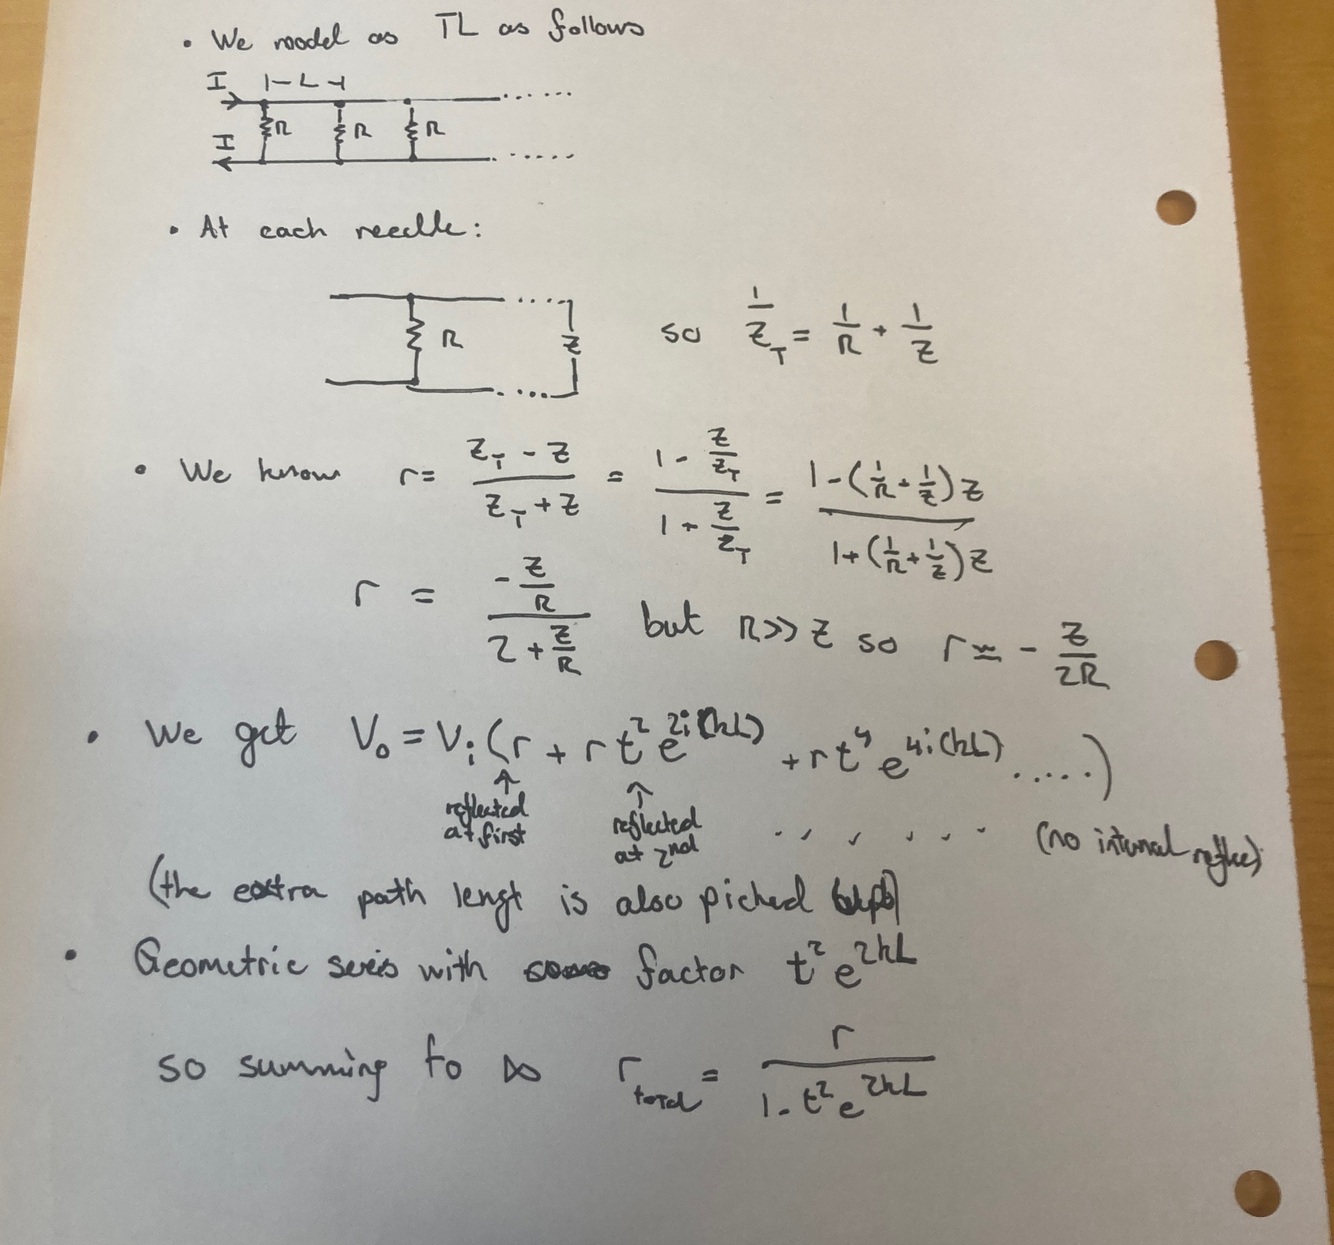 • We model as TL as follows
I |- L -|
R R R
I
• At each needle:
R Z so 1/Z_T = 1/R + 1/Z
• We know r = (Z_T - Z)/(Z_T + Z) = (1 - Z/Z_T)/(1 + Z/Z_T) = (1 - (1/R + 1/Z)Z)/(1 + (1/R + 1/Z)Z)
r = (-Z/R)/(2 + Z/R) but R >> Z so r ≈ - Z/2R
• We get V_o = V_i (r + r t² e^{2i(kL)} + r t⁴ e^{4i(kL)} .....)
↑ reflected at first ↑ reflected at 2nd . . . . . . (no internal)
(the extra path lengt is also picked
• Geometric series with factor t² e^{2kL}
so summing to ∞ r_total = r/(1 - t² e^{2kL})